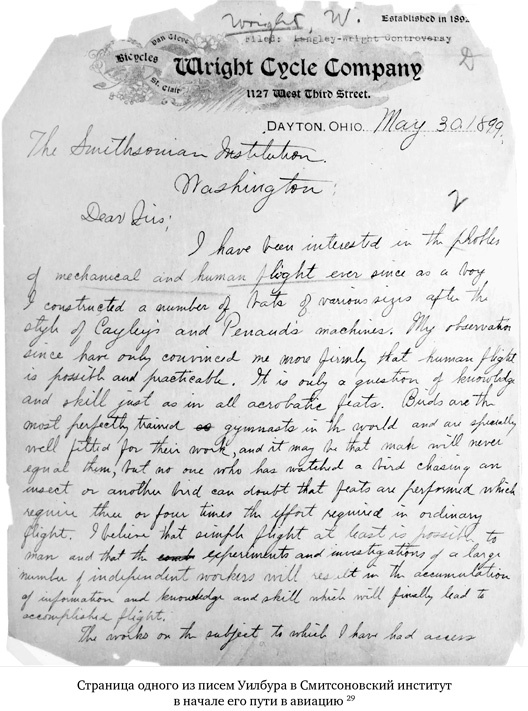 Wright, W.
Established in 189
Filed: Langley-Wright Controversy
Van Cleve
Bicycles
St. Clair
Wright Cycle Company
1127 West Third Street.
DAYTON, OHIO, May 30 1899.
The Smithsonian Institution.
Washington;
Dear Sirs;
2
I have been interested in the problem
of mechanical and human flight ever since as a boy
I constructed a number of bats of various sizes after the
style of Cayley's and Penaud's machines. My observations
since have only convinced me more firmly that human flight
is possible and practicable. It is only a question of knowledge
and skill just as in all acrobatic feats. Birds are the
most perfectly trained gymnasts in the world and are specially
well fitted for their work, and it may be that man will never
equal them, but no one who has watched a bird chasing an
insect or another bird can doubt that feats are performed which
require three or four times the effort required in ordinary
flight. I believe that simple flight at least is possible to
man and that the experiments and investigations of a large
number of independent workers will result in the accumulation
of information and knowledge and skill which will finally lead to
accomplished flight.
The works on the subject to which I have had access
Страница одного из писем Уилбура в Смитсоновский институт
в начале его пути в авиацию 29